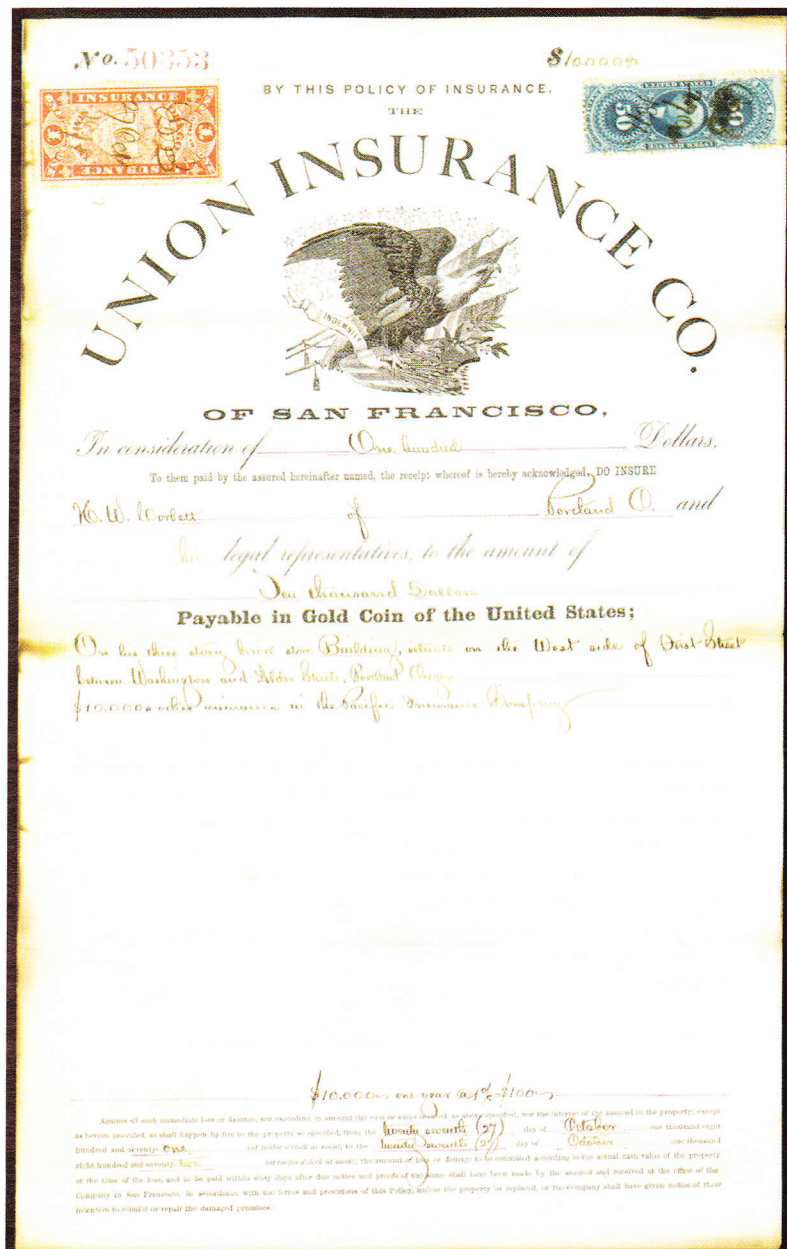 No. 50353 $10,000
BY THIS POLICY OF INSURANCE,
THE
UNION INSURANCE CO.
INDEMNITY
OF SAN FRANCISCO.
In consideration of One hundred Dollars,
To them paid by the assured hereinafter named, the receipt whereof is hereby acknowledged, DO INSURE
H. W. Corbett of Portland O. and
his legal representatives, to the amount of
Ten thousand Dollars
Payable in Gold Coin of the United States;
On his three story brick store Building, situate on the West side of First Street
between Washington and Alder Streets, Portland Oregon
$10.000 other insurance in the Pacific Insurance Company
$10.000 one year @ 1% $100
Against all such immediate loss or damage, not exceeding in amount the sum or sums insured, as above specified, nor the interest of the assured in the property, except
as herein provided, as shall happen by fire to the property so specified, from the twenty seventh (27) day of October one thousand eight
hundred and seventy one (at twelve o'clock at noon), to the twenty seventh (27) day of October one thousand
eight hundred and seventy (at twelve o'clock at noon); the amount of loss or damage to be estimated according to the actual cash value of the property
at the time of the loss, and to be paid within sixty days after due notice and proofs of the same shall have been made by the assured and received at the office of the
Company in San Francisco, in accordance with the terms and provisions of this Policy, unless the property be replaced, or the Company shall have given notice of their
intention to rebuild or repair the damaged premises.
INSURANCE
INSURANCE
UNITED STATES
50 50
INTER. REVENUE